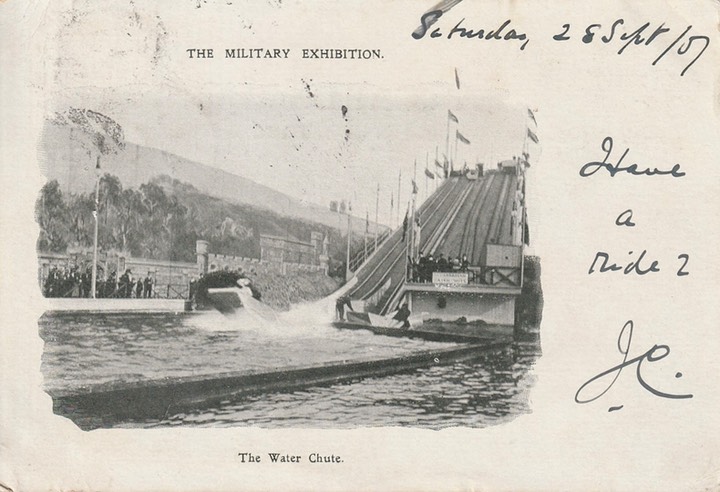 Saturday, 28 Sept/01
THE MILITARY EXHIBITION.
Have
a
ride ?
JC.
The Water Chute.